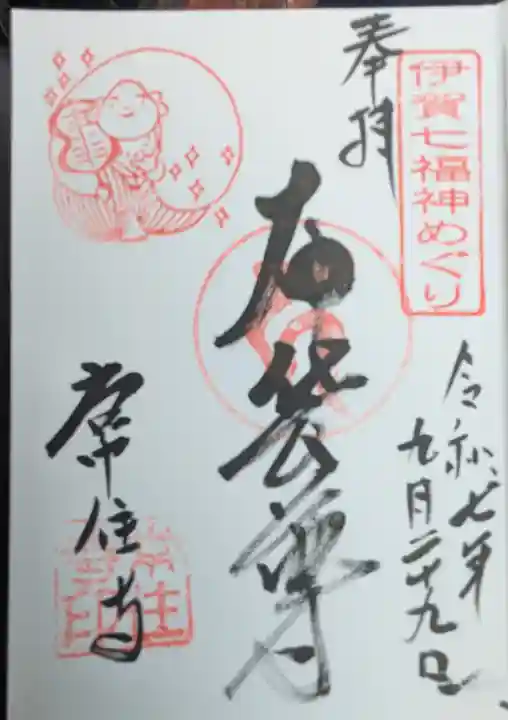 伊賀七福神めぐり
奉拝
令和七年
九月二十九日
布袋尊
常住寺